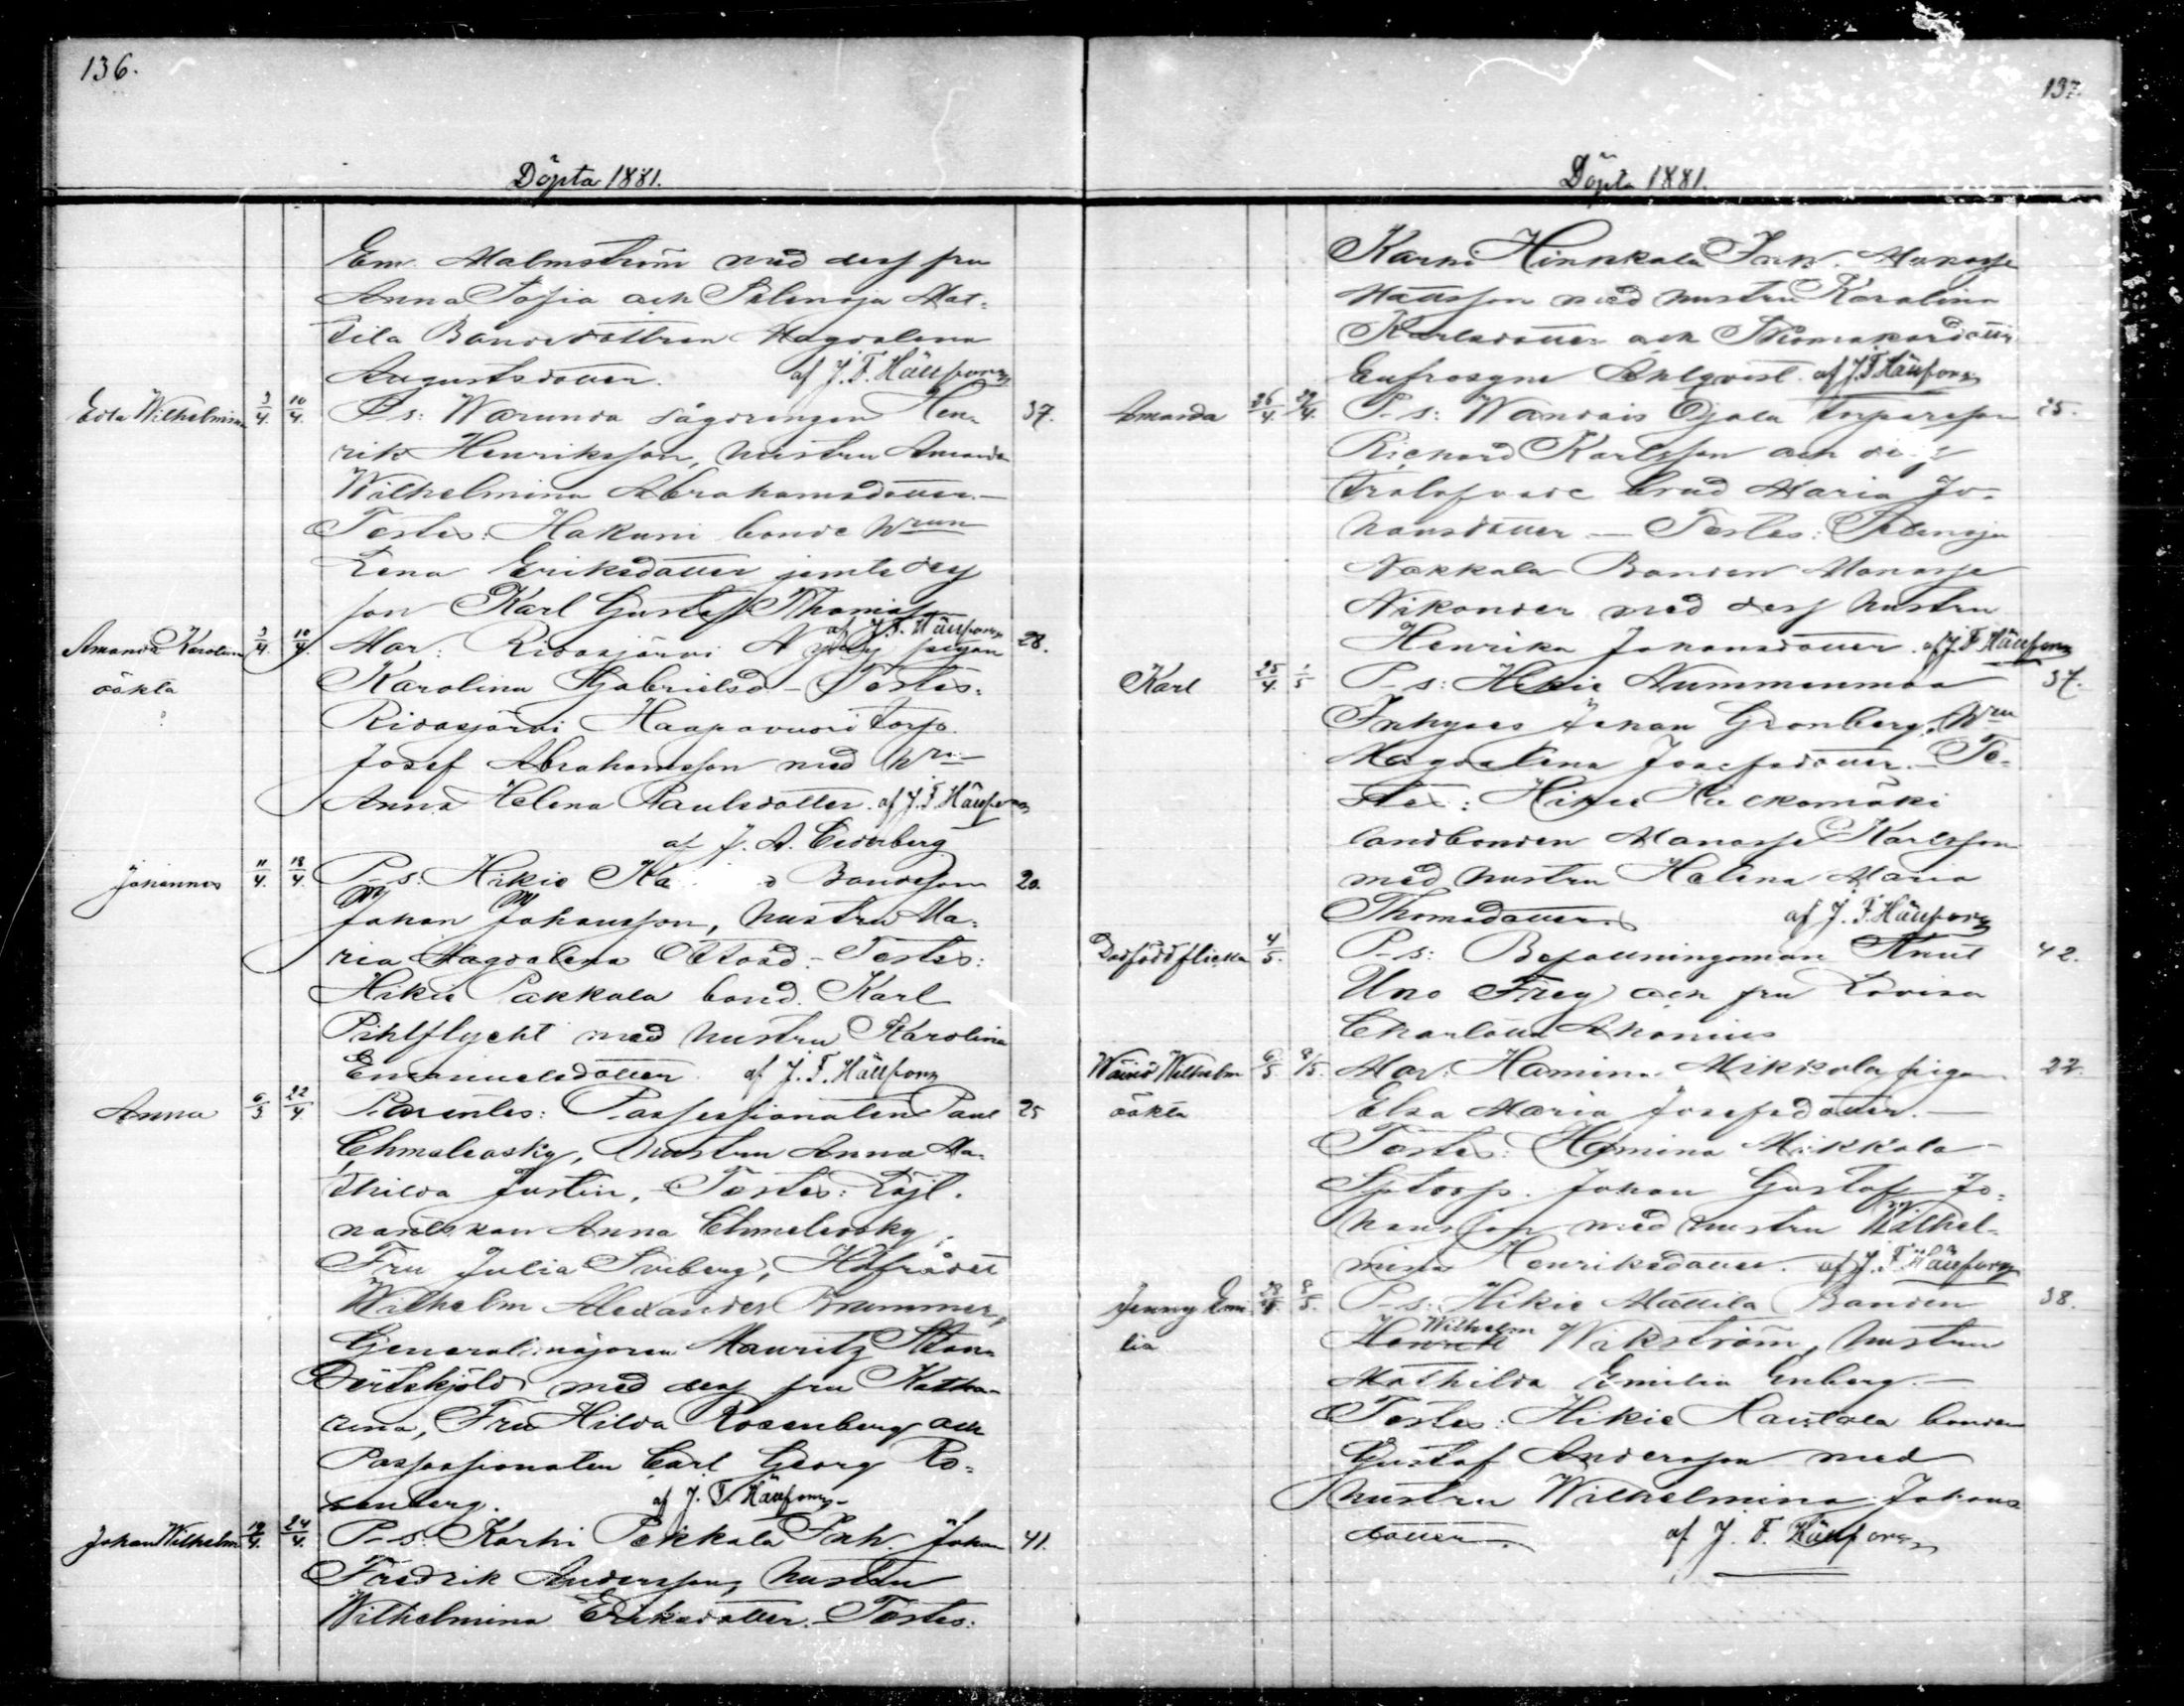 136.
Döpta 1881.
Em. Malmström med dess fru
Anna Sofia och Salensja Mat-
tila Bondedottren Magdalena
Augustsdotter. af J. F. Hällfors
Edla Wilhelmina 3/4. 10/4. P-s: Warunda sågdrengen Hen- 37.
rik Henriksson, hustru Amanda
Wilhelmina Abrahamsdotter.-
Testes: Hakuni bonde
Lena Eriksdotter jemte dess
son Karl Gustaf Thomasson
af J. F. Hällfors
Amanda Karolina 3/4. 10/4. Mar: Ridasjärvi pigan 28.
oäkta Karolina Gabrielsd - Testes:
Ridasjärvi Haapavuori torp.
Josef Abrahamsson med
Anna Helena Paulsdotter. af J. F. Hällfors
af J. A. Cederberg
Johannes 11/4. 18/4. P-s: Hikiä Bondeson 20.
Johan Johansson, hustru Ma-
ria Magdalena Ottosd.- Testes:
Hikiä Pakkala bond. Karl
Pihlflycht med hustru Karolina
Emanuelsdotter af J. F. Hällfors
Anna 6/3 22/4. Parentes: Possessionaten Paul 25
Chmeleosky, hustru Anna Ma-
thilda Justin, - Testes: Löjt-
nantskan Anna Chmeleosky,
Fru Julia Sviberg, Hofrådet
Wilhelm Alexander Brummer,
Generalmajoren Mauritz Stan-
dertskjöld med dess fru Katha-
rina, Fru Hilda Rosenberg och
Possessionaten Carl Georg Ro-
senberg. af J. F. Hällfors
Johan Wilhelm 19/4. 24/4. P-s: Karhi Pekkala Inh. Johan 41.
Fredrik Andersson, hustru
Wilhelmina Eriksdotter - Testes:
137.
Döpta 1881.
Karhi Hinkkala Inh. Manasse
Mattsson med hustru Karolina
Karlsdotter och
Eufrosyne Ahlqvist. af J. F. Hällfors
Amanda 26/4. 29/4. P-s: Wandais Ojala torpareson 25.
Richard Karlsson och
trolofvade brud Maria Jo-
hansdotter - Testes: Salensja
Nakkala Bonden Manasse
Nikander med dess hustru
Henrika Johansdotter. af J. F. Hällfors
Karl 25/4. 1/5 P-s: Hikiä Nummenmaa 37.
Inhyses Johan Grönberg,
Magdalena Josefsdotter - Te-
stes: Hikiä
landbonden Manasse Karlsson
med hustru Helena Maria
Thomasdotter. af J. F. Hällfors
Dödfödd flicka 4/5. P-s: Befallningsman Knut 42.
Uno Frey och fru Lovisa
Charlotta Ahonius
Wäinö Wilhelm 6/5 8/5. Mar: Hamina Mikkola pigan 22.
oäkta Elsa Maria Josefsdotter.-
Testes: Hamina Mikkola
Johan Gustaf Jo-
hansson med hustru Wilhel-
mina Henriksdotter. af J. F. Hällfors
Jenny Emi- 8/5. P-s: Hikiä Mattila Bonden 38.
lia Henrik Wilhelm Wikström, hustru
Mathilda Emilia Enberg.-
Testes: Hikiä Rautala bonden
Gustaf Andersson med
hustru Wilhelmina Johans-
dotter. af J. F. Hällfors